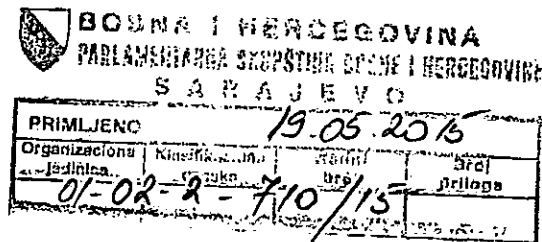 BOSNA I HERCEGOVINA
PARLAMENTARNA SKUPŠTINA BOSNE I HERCEGOVINE
SARAJEVO
PRIMLJENO 19.05.2015
Organizaciona jedinica Klasifikaciona oznaka Redni broj Broj priloga
01-02-2-710/15